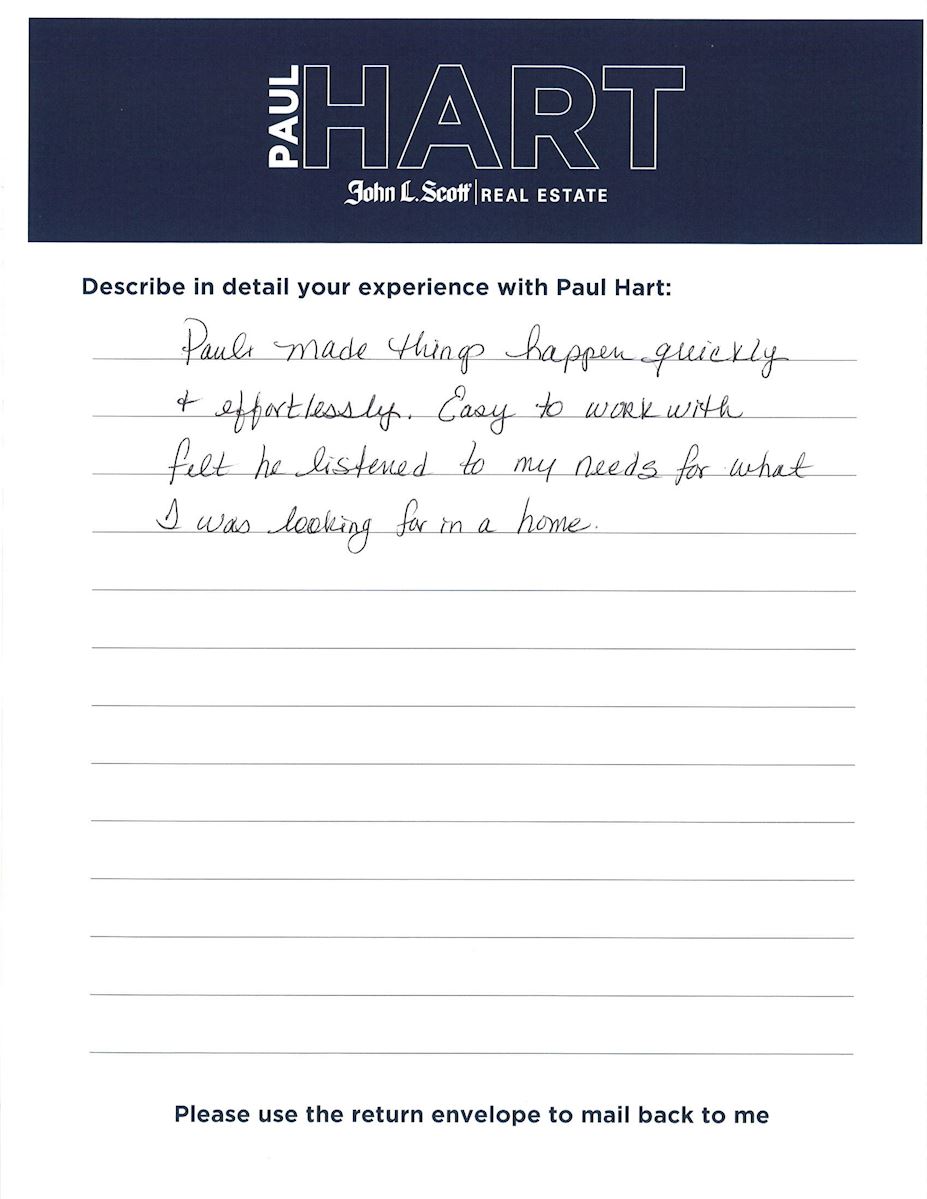 PAUL HART
John L. Scott | REAL ESTATE
Describe in detail your experience with Paul Hart:
Paul made things happen quickly
+ effortlessly. Easy to work with
felt he listened to my needs for what
I was looking for in a home.
Please use the return envelope to mail back to me